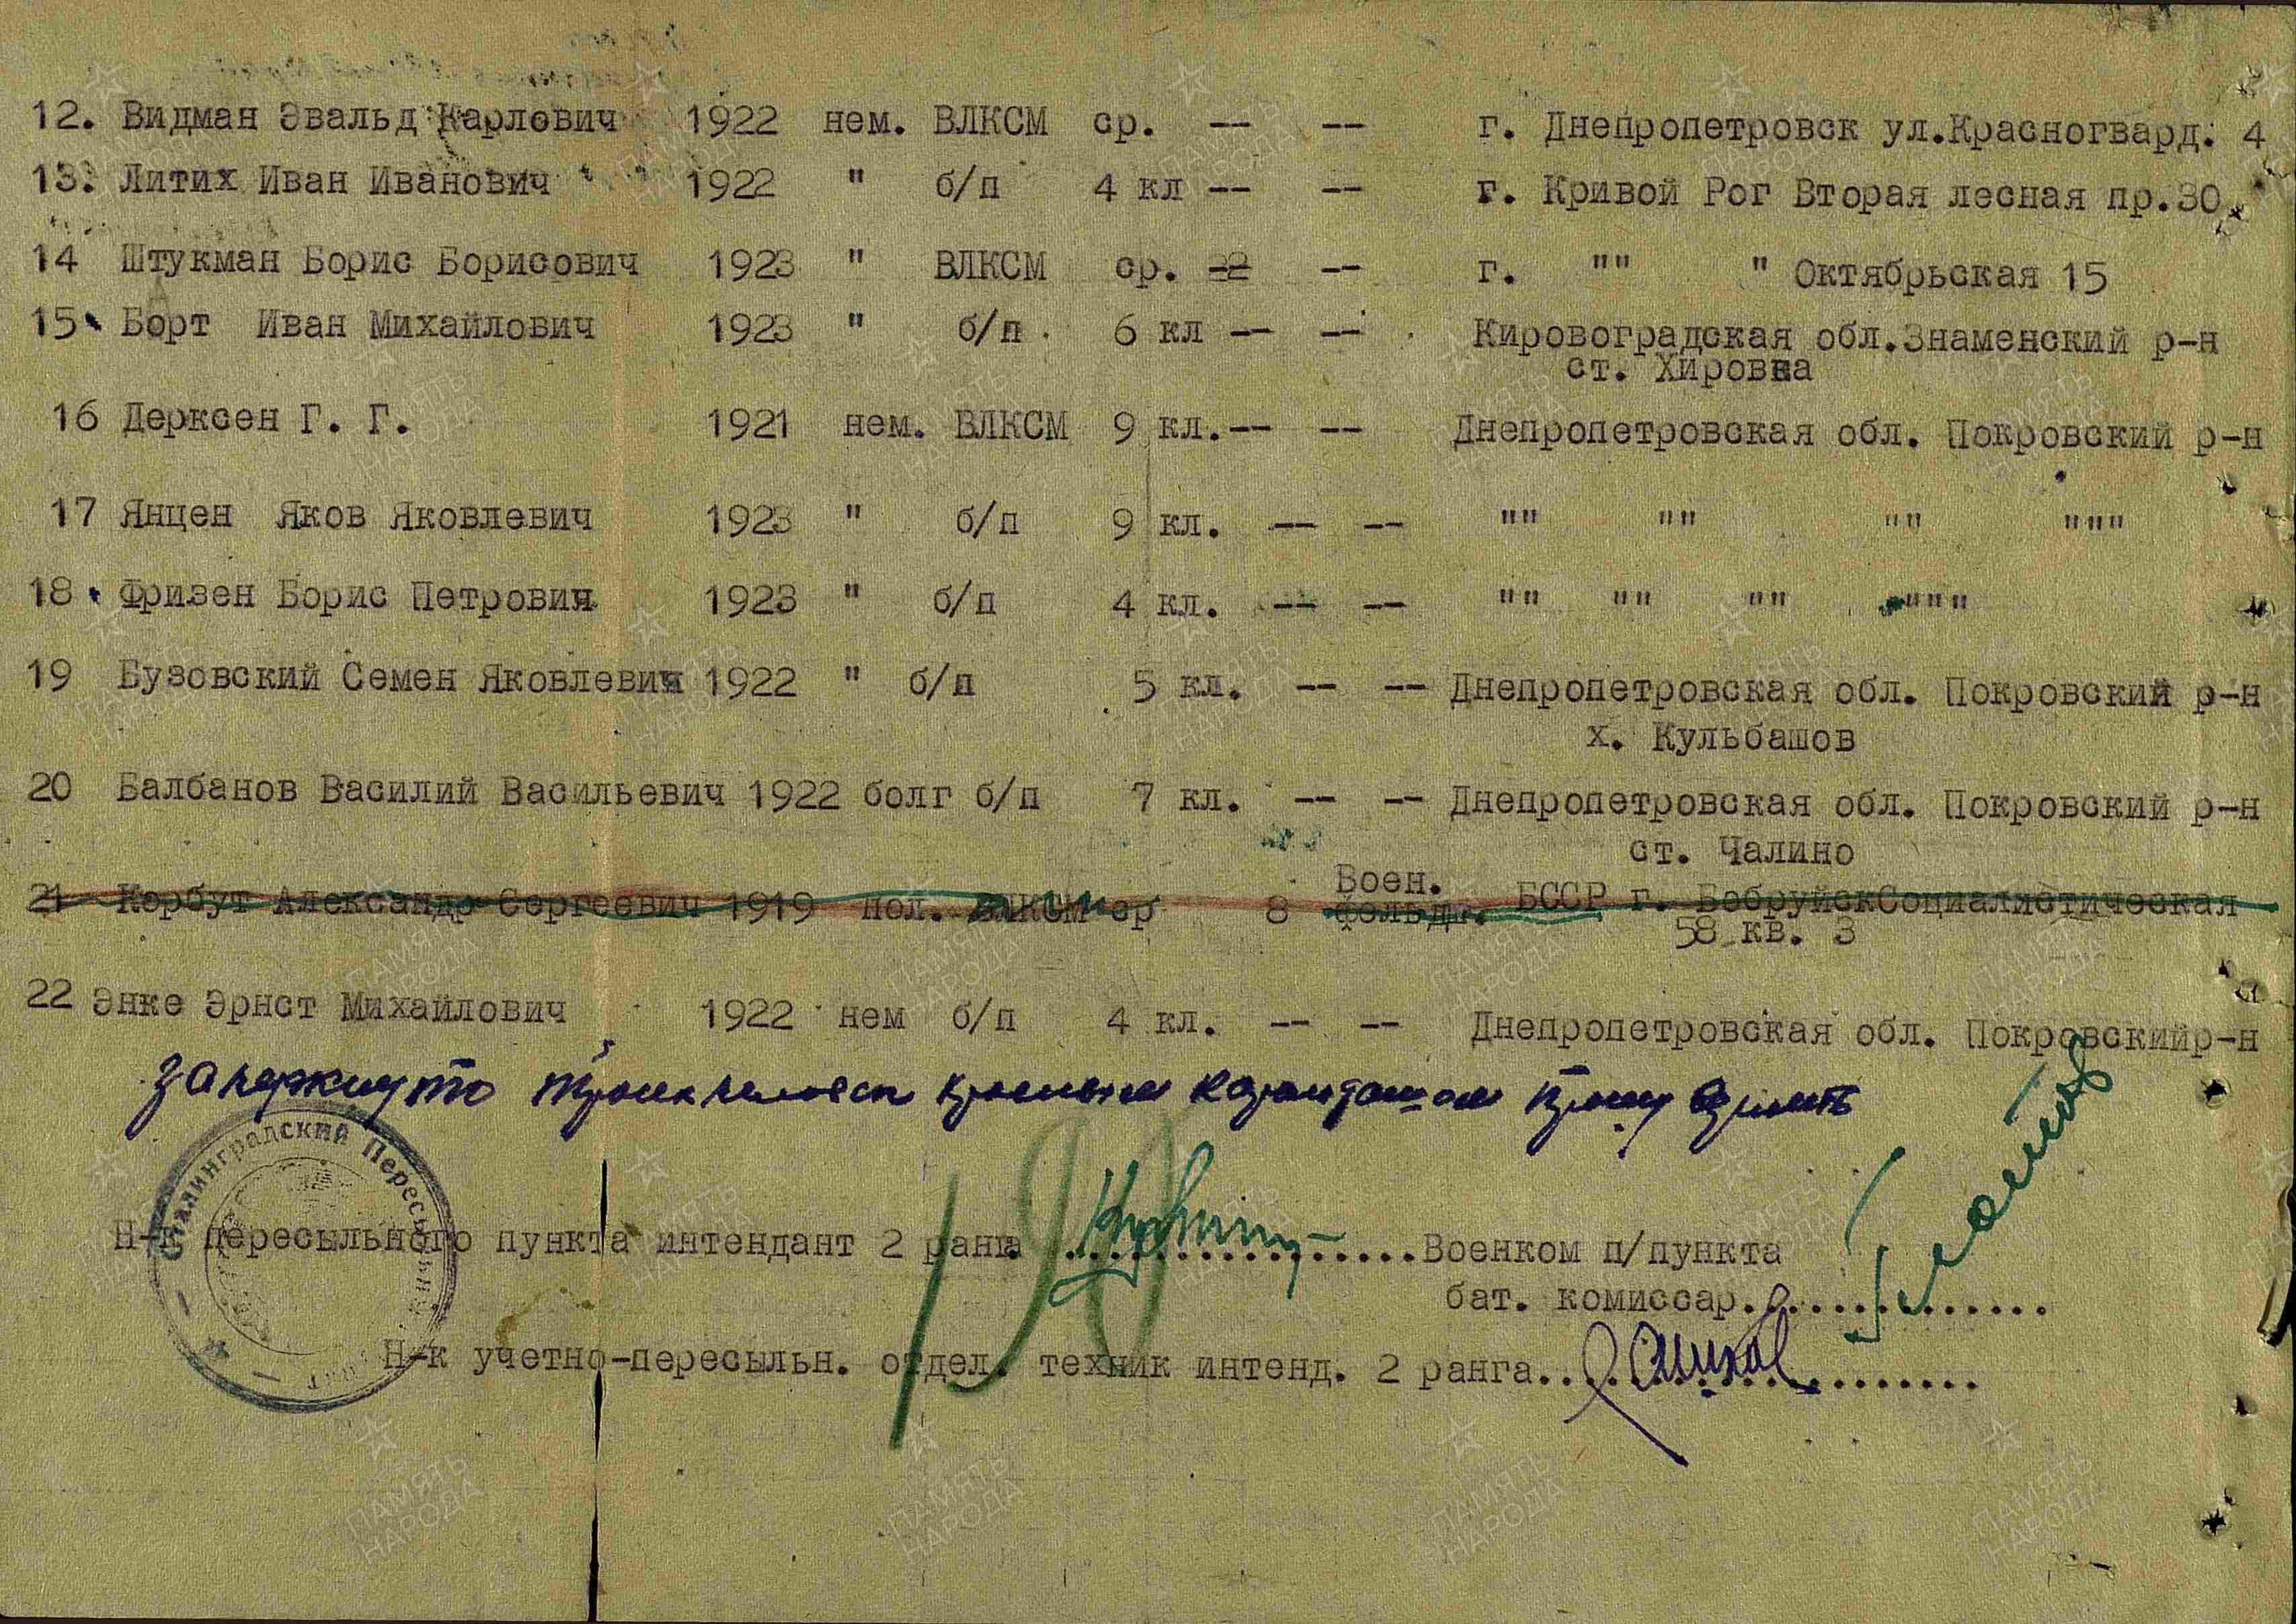 12. Видман Эвальд Карлович 1922 нем. ВЛКСМ ср. -- -- г. Днепропетровск ул.Красногвард. 4
13. Литих Иван Иванович 1922 " б/п 4 кл -- -- г. Кривой Рог Вторая лесная пр.30
14 Штукман Борис Борисович 1923 " ВЛКСМ ср. -- -- г. "" " Октябрьская 15
15. Борт Иван Михайлович 1923 " б/п. 6 кл -- -- Кировоградская обл.Знаменский р-н
ст. Хировка
16 Дерксен Г. Г. 1921 нем. ВЛКСМ 9 кл.-- -- Днепропетровская обл. Покровский р-н
17 Янцен Яков Яковлевич 1923 " б/п 9 кл. -- -- "" "" "" """
18. Фризен Борис Петрович 1923 " б/п 4 кл. -- -- "" "" "" """"
19 Бузовский Семен Яковлевич 1922 " б/п 5 кл. -- -- Днепропетровская обл. Покровский р-н
х. Кульбашов
20 Балбанов Василий Васильевич 1922 болг б/п 7 кл. -- -- Днепропетровская обл. Покровский р-н
ст. Чалино
21 Корбут Александр Сергеевич 1919 пол. ВЛКСМ ср 8 Воен. фельдш. БССР г. БобруйскСоциалистическая
58 кв. 3
22 Энке Эрнст Михайлович 1922 нем б/п 4 кл. -- -- Днепропетровская обл. Покровскийр-н
Зачеркнуто карандашом
Сталинградский Пересыльный
Н-к пересыльного пункта интендант 2 ранга ................Военком п/пункта
бат. комиссар..............
Н-к учетно-пересыльн. отдел. техник интенд. 2 ранга....................
ПАМЯТЬ НАРОДА